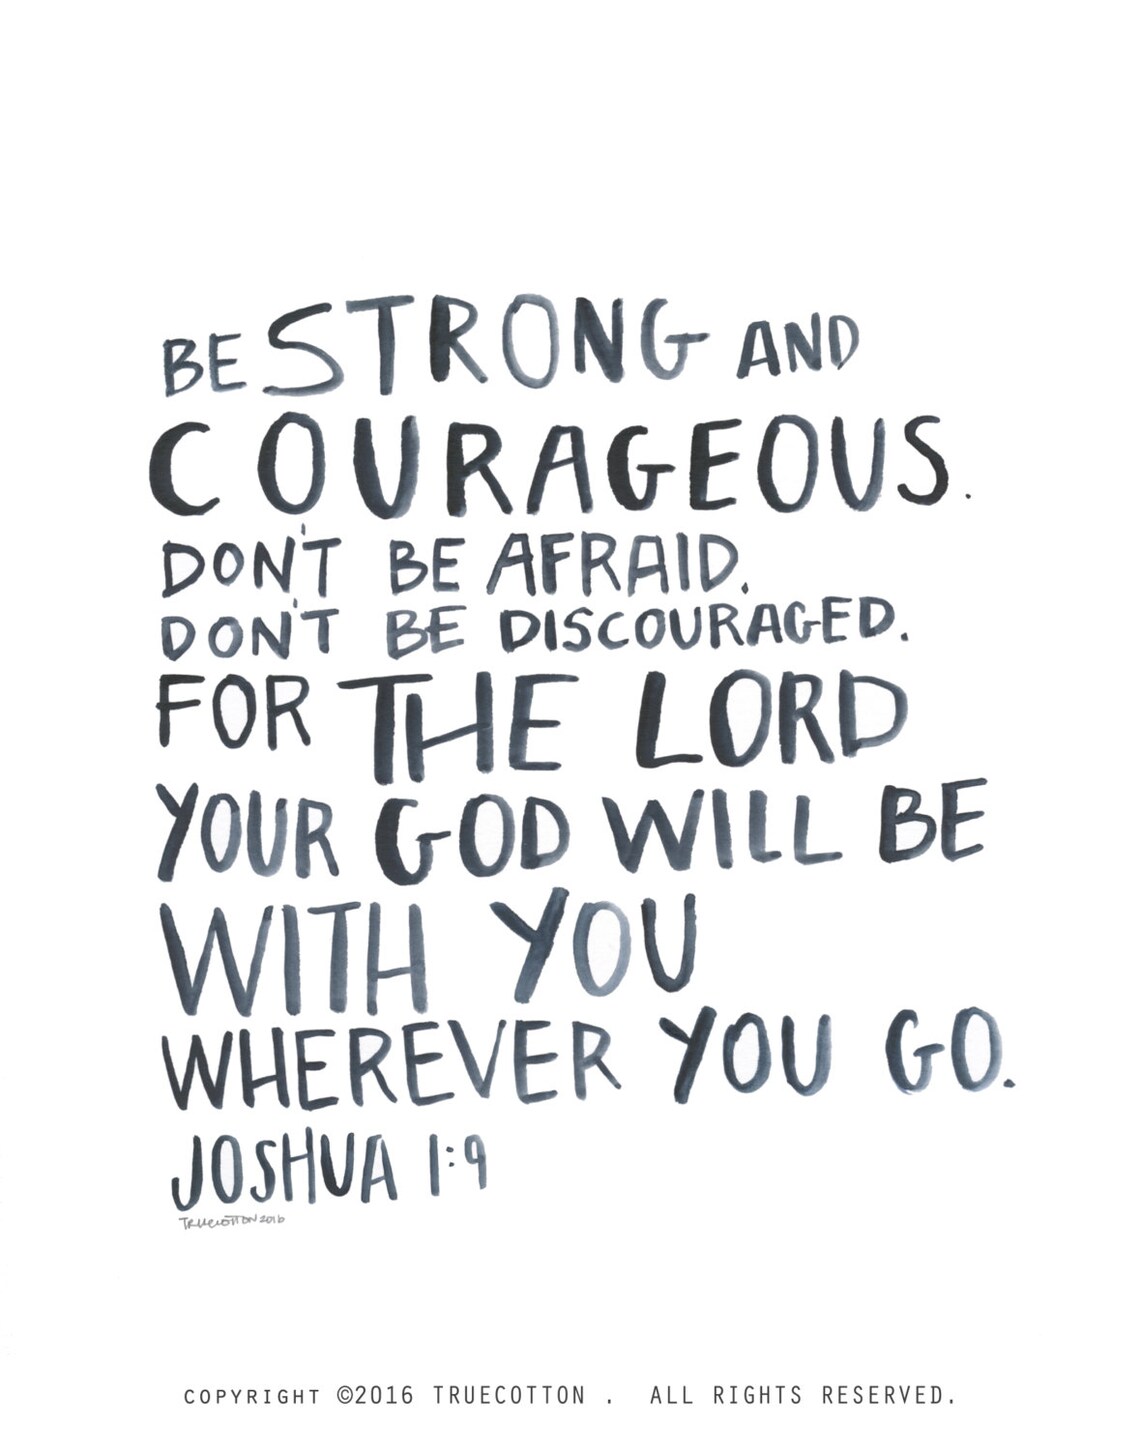 BE STRONG AND
COURAGEOUS.
DON'T BE AFRAID.
DON'T BE DISCOURAGED.
FOR THE LORD
YOUR GOD WILL BE
WITH YOU
WHEREVER YOU GO.
JOSHUA 1:9
TRUECOTTON 2016
COPYRIGHT ©2016 TRUECOTTON . ALL RIGHTS RESERVED.